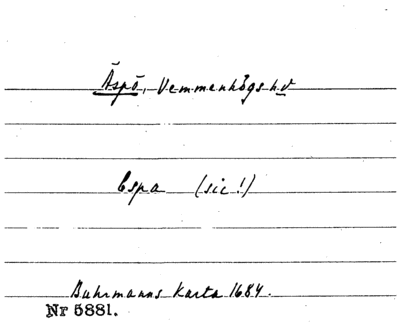 Äspö, Vemmenhögs hd
Espa (sic!)
Buhrmanns Karta 1684.
Nr 5881.